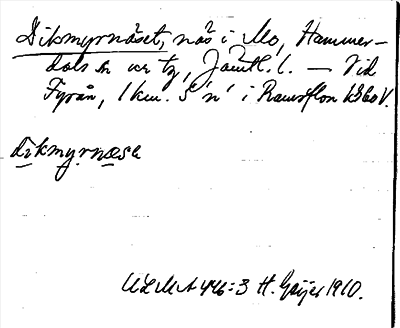 Dikmyrnäset, näs i Mo, Hammer-
dals sn
Jämtl. l. — Vid
Fyrån, 1 km. S n i Ramsflon
dikmyrnæse
ULMA 446:3 H. Geijer 1910.